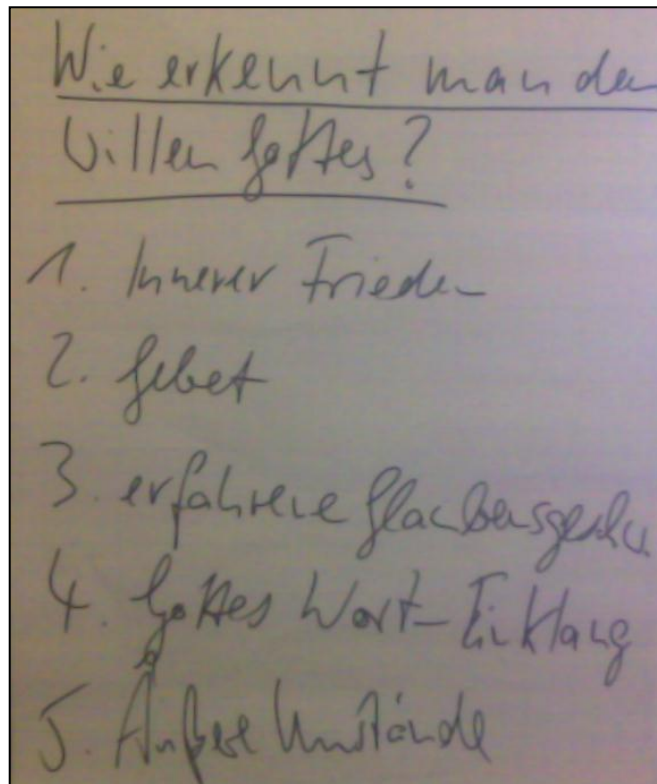 Wie erkennt man den
Willen Gottes?
1. Innerer Frieden
2. Gebet
3. erfahrene Glaubensgeschw.
4. Gottes Wort - Einklang
5. Äußere Umstände